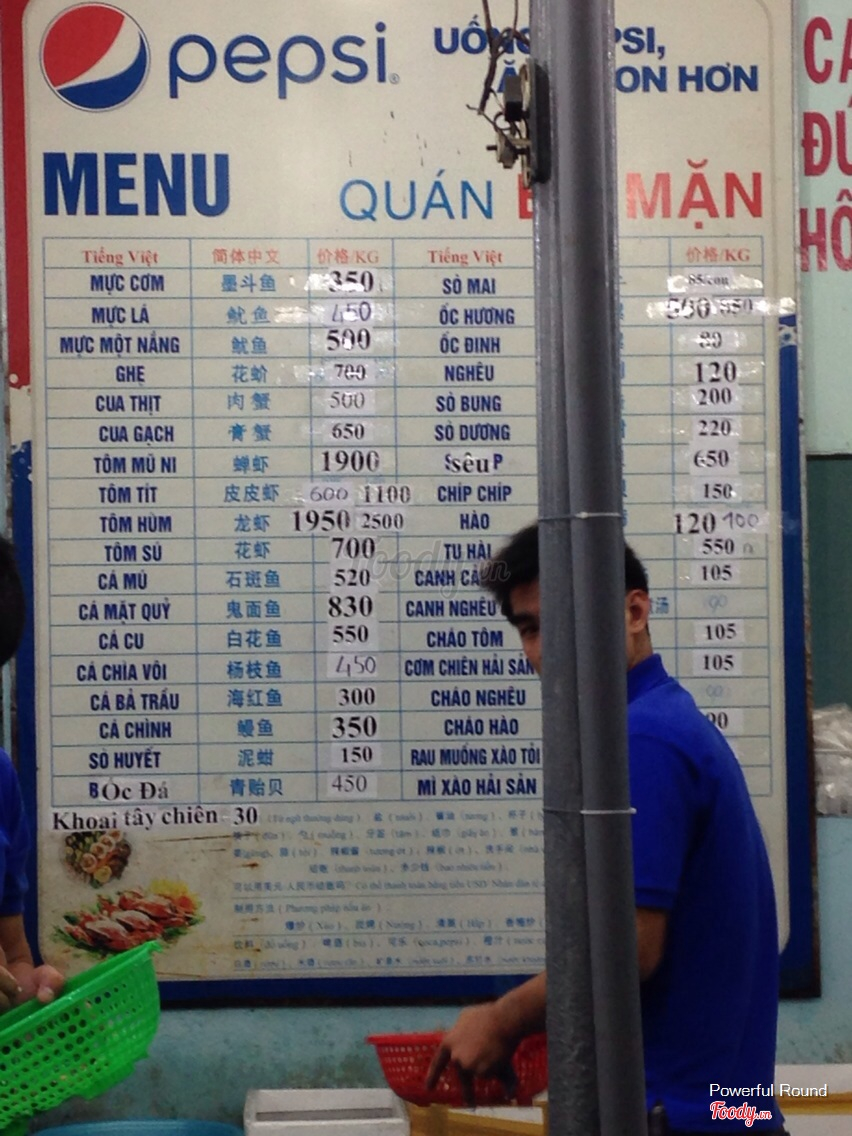 pepsi
UỐNG PSI,
ON HƠN
MENU QUÁN MẶN
CA
ĐÚ
HÔ
Tiếng Việt 简体中文 价格/KG Tiếng Việt 价格/KG
MỰC CƠM 墨斗鱼 350 SÒ MAI 85/con
MỰC LÁ 鱿鱼 450 ỐC HƯƠNG 500 650
MỰC MỘT NẮNG 鱿鱼 500 ỐC ĐINH 80
GHẸ 花蚧 700 NGHÊU 120
CUA THỊT 肉蟹 500 SÒ BUNG 200
CUA GẠCH 膏蟹 650 SÒ DƯƠNG 220
TÔM MŨ NI 蝉虾 1900 sêu P 650
TÔM TÍT 皮皮虾 600 1100 CHÍP CHÍP 150
TÔM HÙM 龙虾 1950 2500 HÀO 120 100
TÔM SÚ 花虾 700 TU HÀI 550
CÁ MÚ 石斑鱼 520 CANH CÁ 105
CÁ MẶT QUỶ 鬼面鱼 830 CANH NGHÊU 汤 90
CÁ CU 白花鱼 550 CHÁO TÔM 105
CÁ CHÌA VÔI 杨枝鱼 450 CƠM CHIÊN HẢI SẢN 105
CÁ BẢ TRẦU 海红鱼 300 CHÁO NGHÊU 90
CÁ CHÌNH 鳗鱼 350 CHÁO HÀO 90
SÒ HUYẾT 泥蚶 150 RAU MUỐNG XÀO TỎI
Ốc Đá 青贻贝 450 MÌ XÀO HẢI SẢN
Khoai tây chiên - 30
Powerful Round
Foody.vn